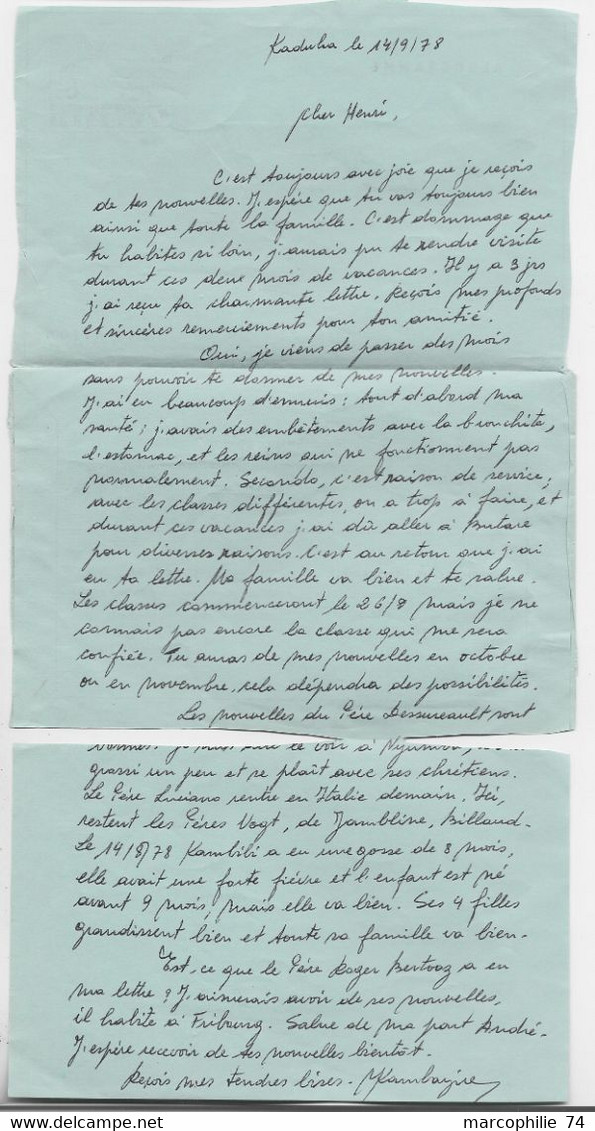 Kaduha le 14/9/78
Cher Henri,
C'est toujours avec joie que je reçois
de tes nouvelles. J'espère que tu vas toujours bien
ainsi que toute la famille. C'est dommage que
tu habites si loin, j'aurais pu te rendre visite
durant ces deux mois de vacances. Il y a 3 jrs
j'ai reçu ta charmante lettre. Reçois mes profonds
et sincères remerciements pour ton amitié.
Oui, je viens de passer des mois
sans pouvoir te donner de mes nouvelles.
J'ai eu beaucoup d'ennuis : tout d'abord ma
santé ; j'avais des embêtements avec la bronchite,
l'estomac, et les reins qui ne fonctionnent pas
normalement. Secondo, c'est raison de service ;
avec les classes différentes, on a trop à faire, et
durant ces vacances j'ai dû aller à Butare
pour diverses raisons. C'est au retour que j'ai
eu ta lettre. Ma famille va bien et te salue.
Les classes commenceront le mais je ne
connais pas encore la classe qui me sera
confiée. Tu auras de mes nouvelles en octobre
ou en novembre, cela dépendra des possibilités.
Les nouvelles du Père Dessureault sont
bonnes. je suis le voir à
grassi un peu et se plaît avec ses chrétiens.
Le Père Luciano rentre en Italie demain. Ici,
restent les Pères Vogt, de Jambline, Billaud.
Le 14/8/78 Kambibi a eu une gosse de 8 mois,
elle avait une forte fièvre et l'enfant est né
avant 9 mois, mais elle va bien. Ses 4 filles
grandissent bien et toute sa famille va bien.
Est-ce que le Père Roger a eu
ma lettre ? J'aimerais avoir de ses nouvelles,
il habite à Fribourg. Salue de ma part André.
J'espère recevoir de tes nouvelles bientôt.
Reçois mes tendres bises.
marcophilie 74